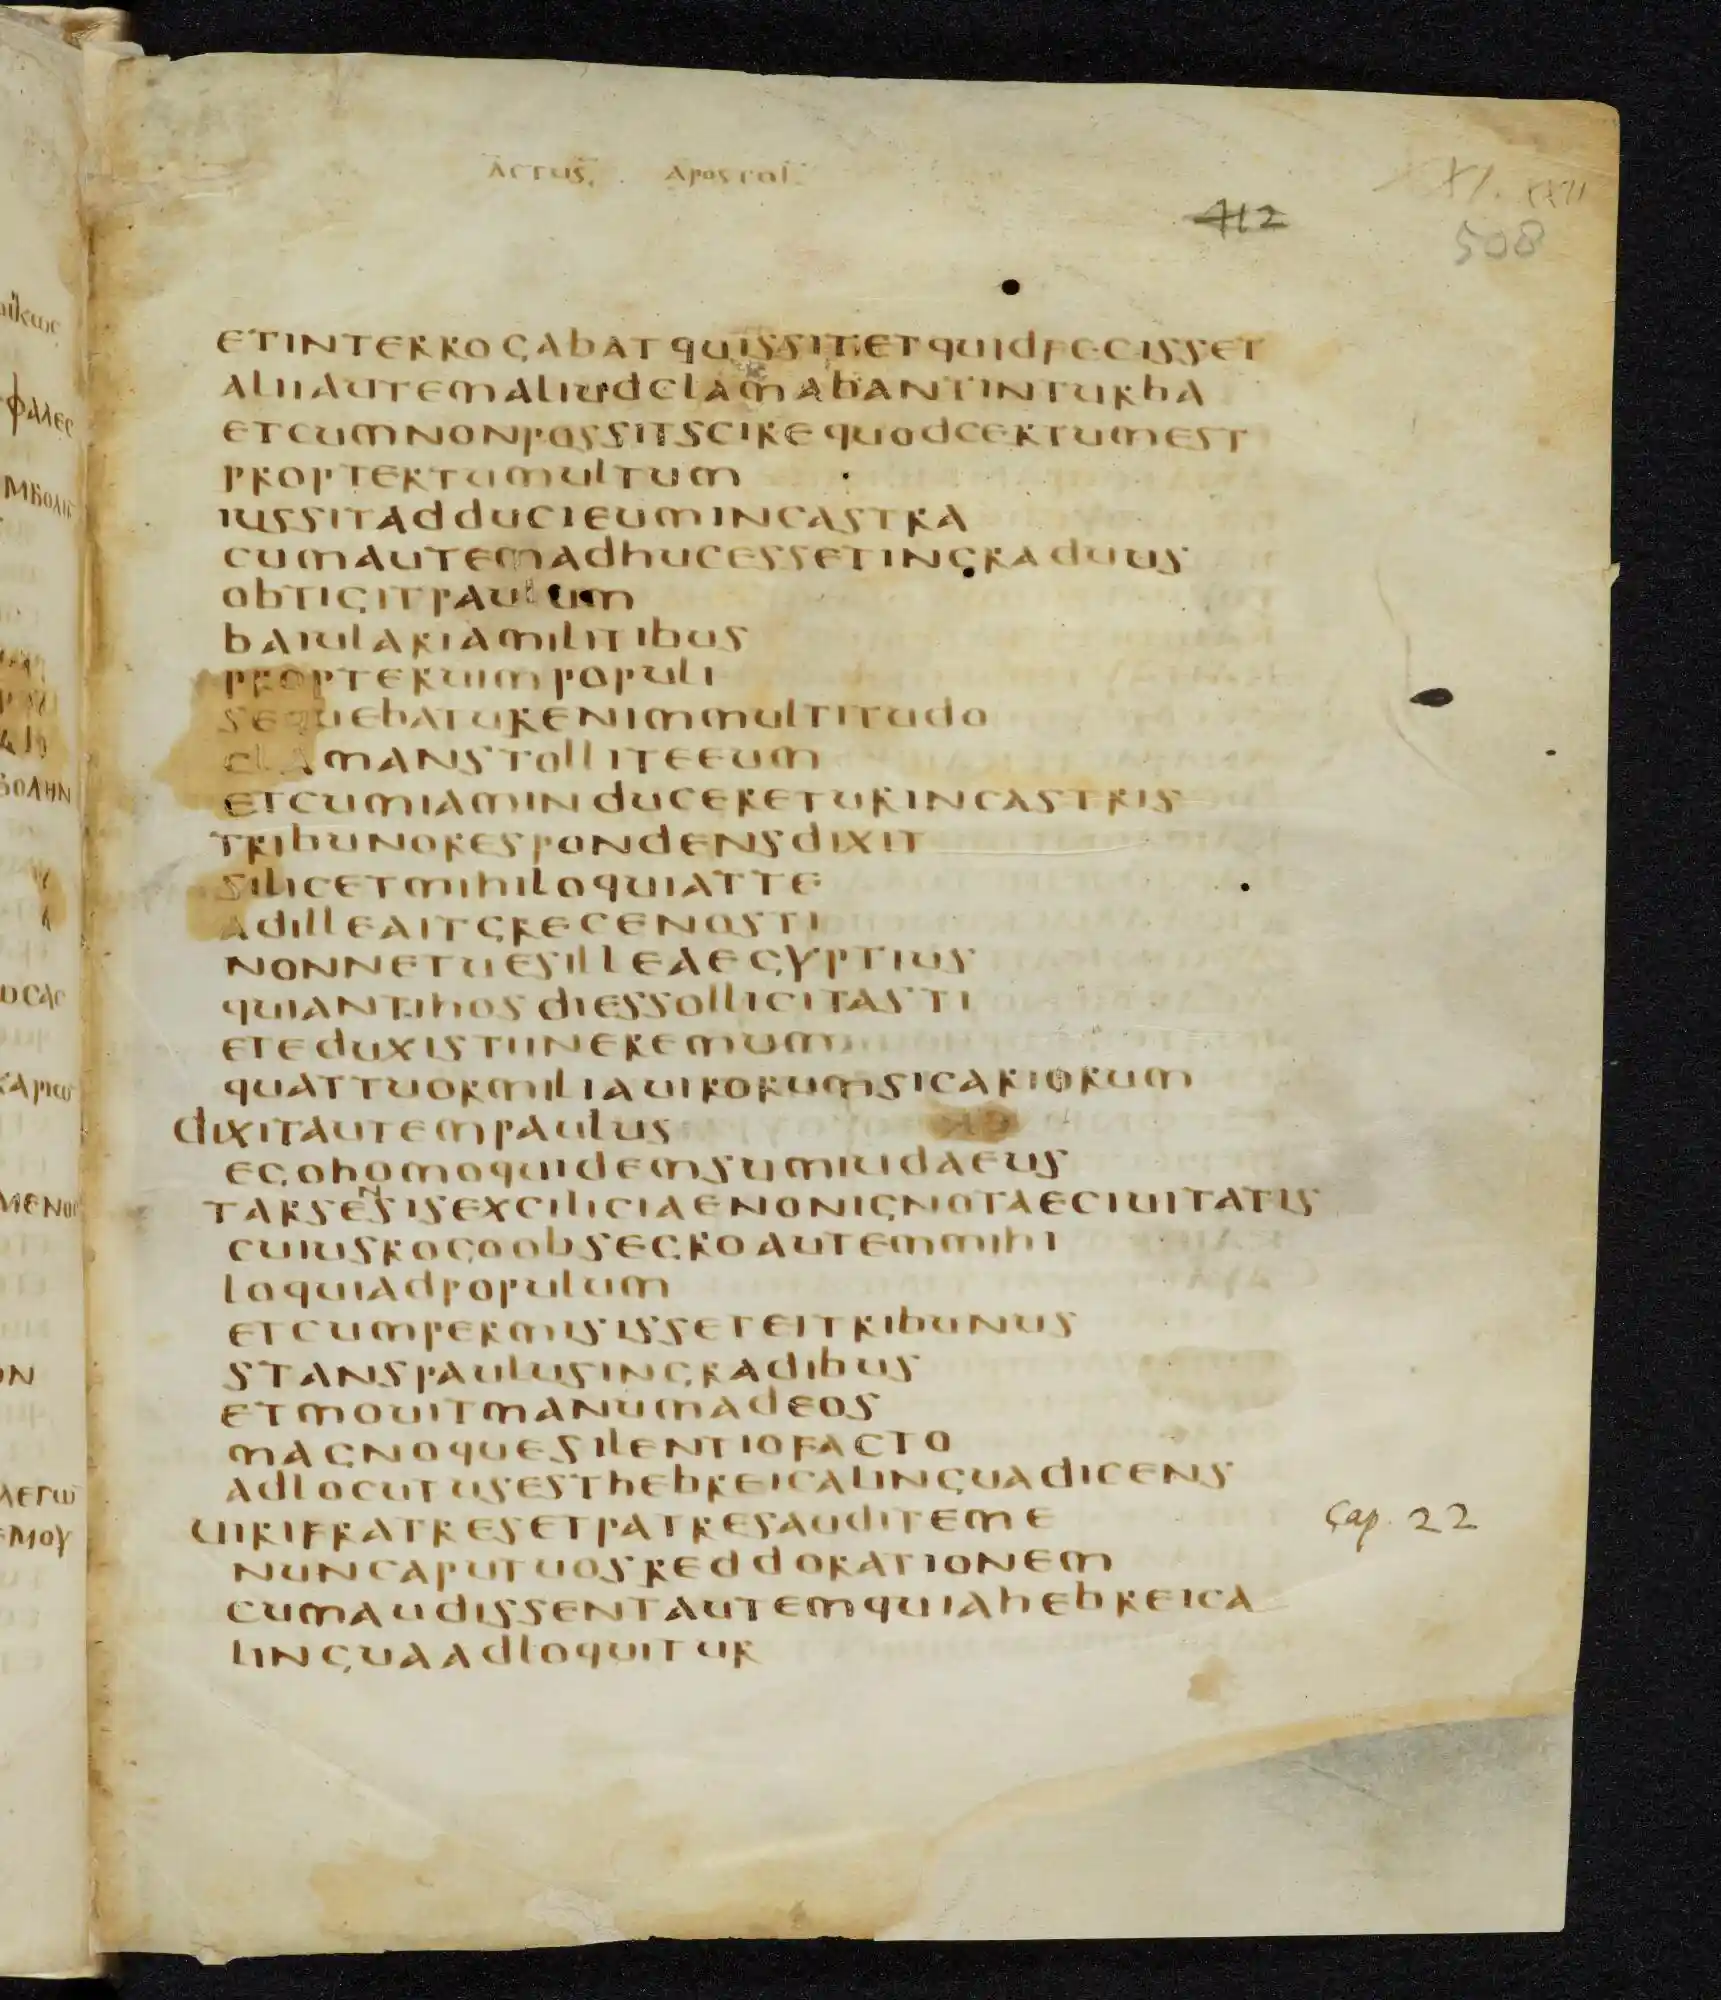 ACTUS. APOSTOL.
412
XI. XXII
508
ETINTERROGABATQUISSITETQUIDFECISSET
ALIIAUTEMALIUDCLAMABANTINTURBA
ETCUMNONPOSSITSCIREQUODCERTUMEST
PROPTERTUMULTUM
IUSSITADDUCIEUMINCASTRA
CUMAUTEMADHUCESSETINGRADUUS
OBTIGITPAULUM
BAIULARIAMILITIBUS
PROPTERUIMPOPULI
SEQUEBATURENIMMULTITUDO
CLAMANSTOLLITEEUM
ETCUMIAMINDUCERETURINCASTRIS
TRIBUNORESPONDENSDIXIT
SILICETMIHILOQUIATTE
ADILLEAITGRECENOSTI
NONNETUESILLEAEGYPTIUS
QUIANTIHOSDIESSOLLICITASTI
ETEDUXISTIINEREMUM
QUATTUORMILIAUIRORUMSICARIORUM
DIXITAUTEMPAULUS
EGOHOMOQUIDEMSUMIUDAEUS
TARSENSISEXCILICIAENONIGNOTAECIUITATIS
CUIUSROGOOBSECROAUTEMMIHI
LOQUIADPOPULUM
ETCUMPERMISISSETEITRIBUNUS
STANSPAULUSINGRADIBUS
ETMOUITMANUMADEOS
MAGNOQUESILENTIOFACTO
ADLOCUTUSESTHEBREICALINGUADICENS
UIRIFRATRESETPATRESAUDITEME
Cap. 22
NUNCAPUTUOSREDDORATIONEM
CUMAUDISSENTAUTEMQUIAHEBREICA
LINGUAADLOQUITUR